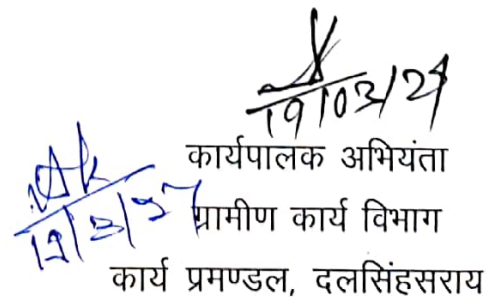 19/03/24
कार्यपालक अभियंता
ग्रामीण कार्य विभाग
कार्य प्रमण्डल, दलसिंहसराय